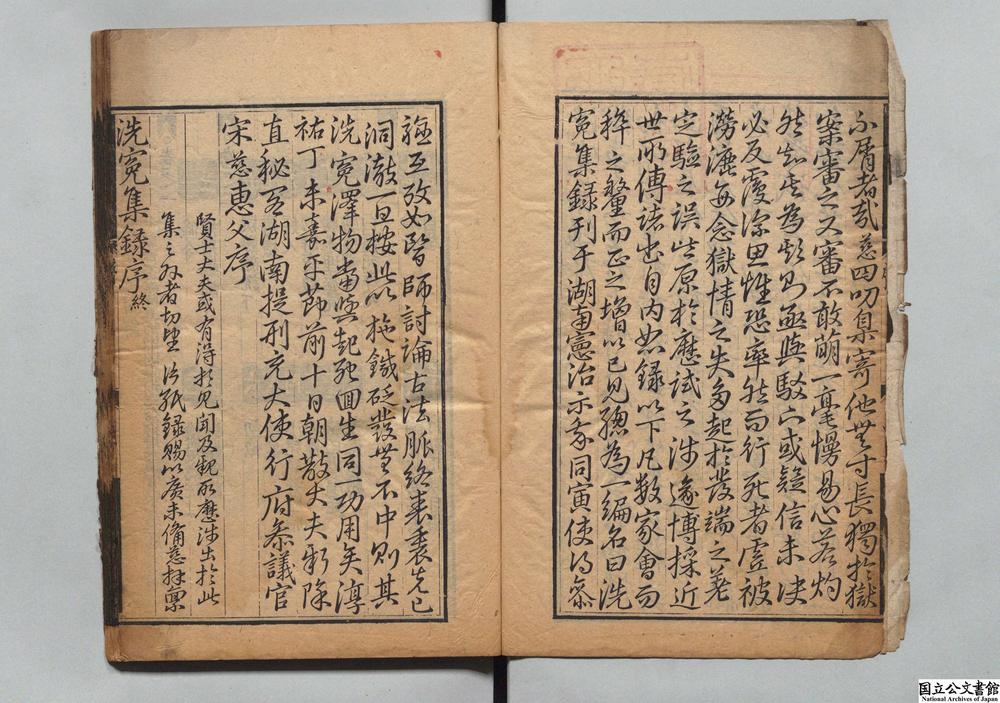 不屑者哉慈四叨臬寄他無寸長獨於獄
案審之又審不敢萌一毫慢易心若灼
然知其為欺則亟與駁下或疑信未決
必反覆深思惟恐率然而行死者虛被
澇漉每念獄情之失多起於發端之差
定驗之誤皆原於歷試之淺遂博採近
世所傳諸書自內恕錄以下凡數家會而
稡之釐而正之增以已見總為一編名曰洗
冤集錄刊于湖南憲治示我同寅使得參
驗互攷如醫師討論古法脈絡表裏先已
洞澈一旦按此以施鍼砭發無不中則其
洗冤澤物當與起死回生同一功用矣淳
祐丁未嘉平節前十日朝散大夫新除
直秘閣湖南提刑充大使行府參議官
宋慈惠父序
賢士大夫或有得於見聞及親所歷涉出於此
集之外者切望片紙錄賜以廣未備慈拜稟
洗冤集錄序終
国立公文書館
National Archives of Japan